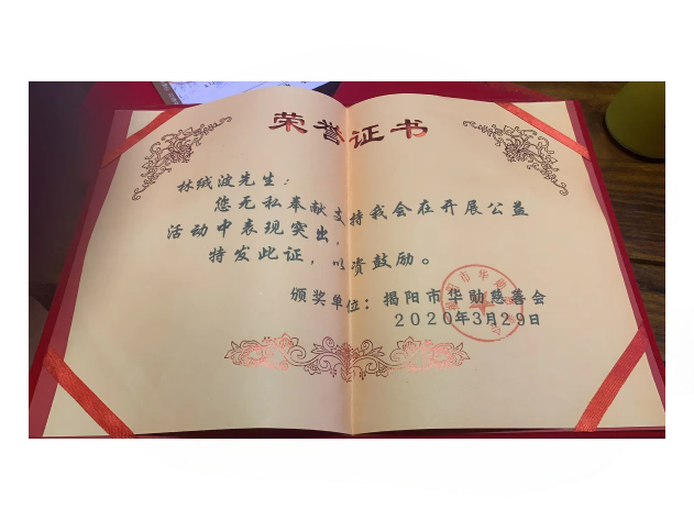 荣誉证书
林绒波先生：
您无私奉献支持我会在开展公益
活动中表现突出，
特发此证，以资鼓励。
颁奖单位：揭阳市华勋慈善会
2020年3月29日